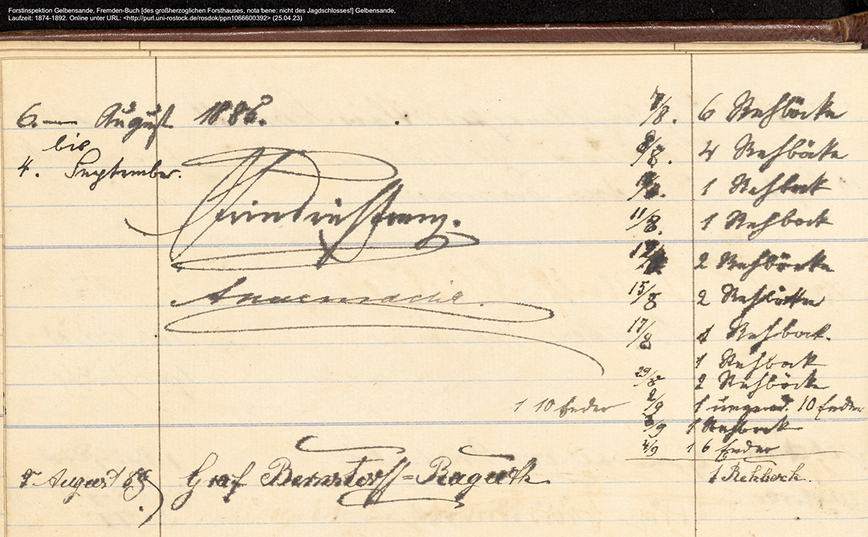 Forstinspektion Gelbensande, Fremden-Buch [des großherzoglichen Forsthauses, nota bene: nicht des Jagdschlosses!] Gelbensande,
Laufzeit: 1874-1892. Online unter URL: <http://purl.uni-rostock.de/rosdok/ppn1066600392> (25.04.23)
6. — August 1886. 7/8. 6 Rehböcke
bis 8/8. 4 Rehböcke
4. September. 1 Rehbock
Friedrich Franz. 11/8. 1 Rehbock
2 Rehböcke
Annemarie. 15/8 2 Rehböcke
17/8 1 Rehbock.
1 Rehbock
29/8 2 Rehböcke
1 10 Ender 2/9 1 ungerad. 10 Ender
3/9 1 Rehbock
4/9 1 6 Ender
August Graf Bernstorff = 1 Rehbock.